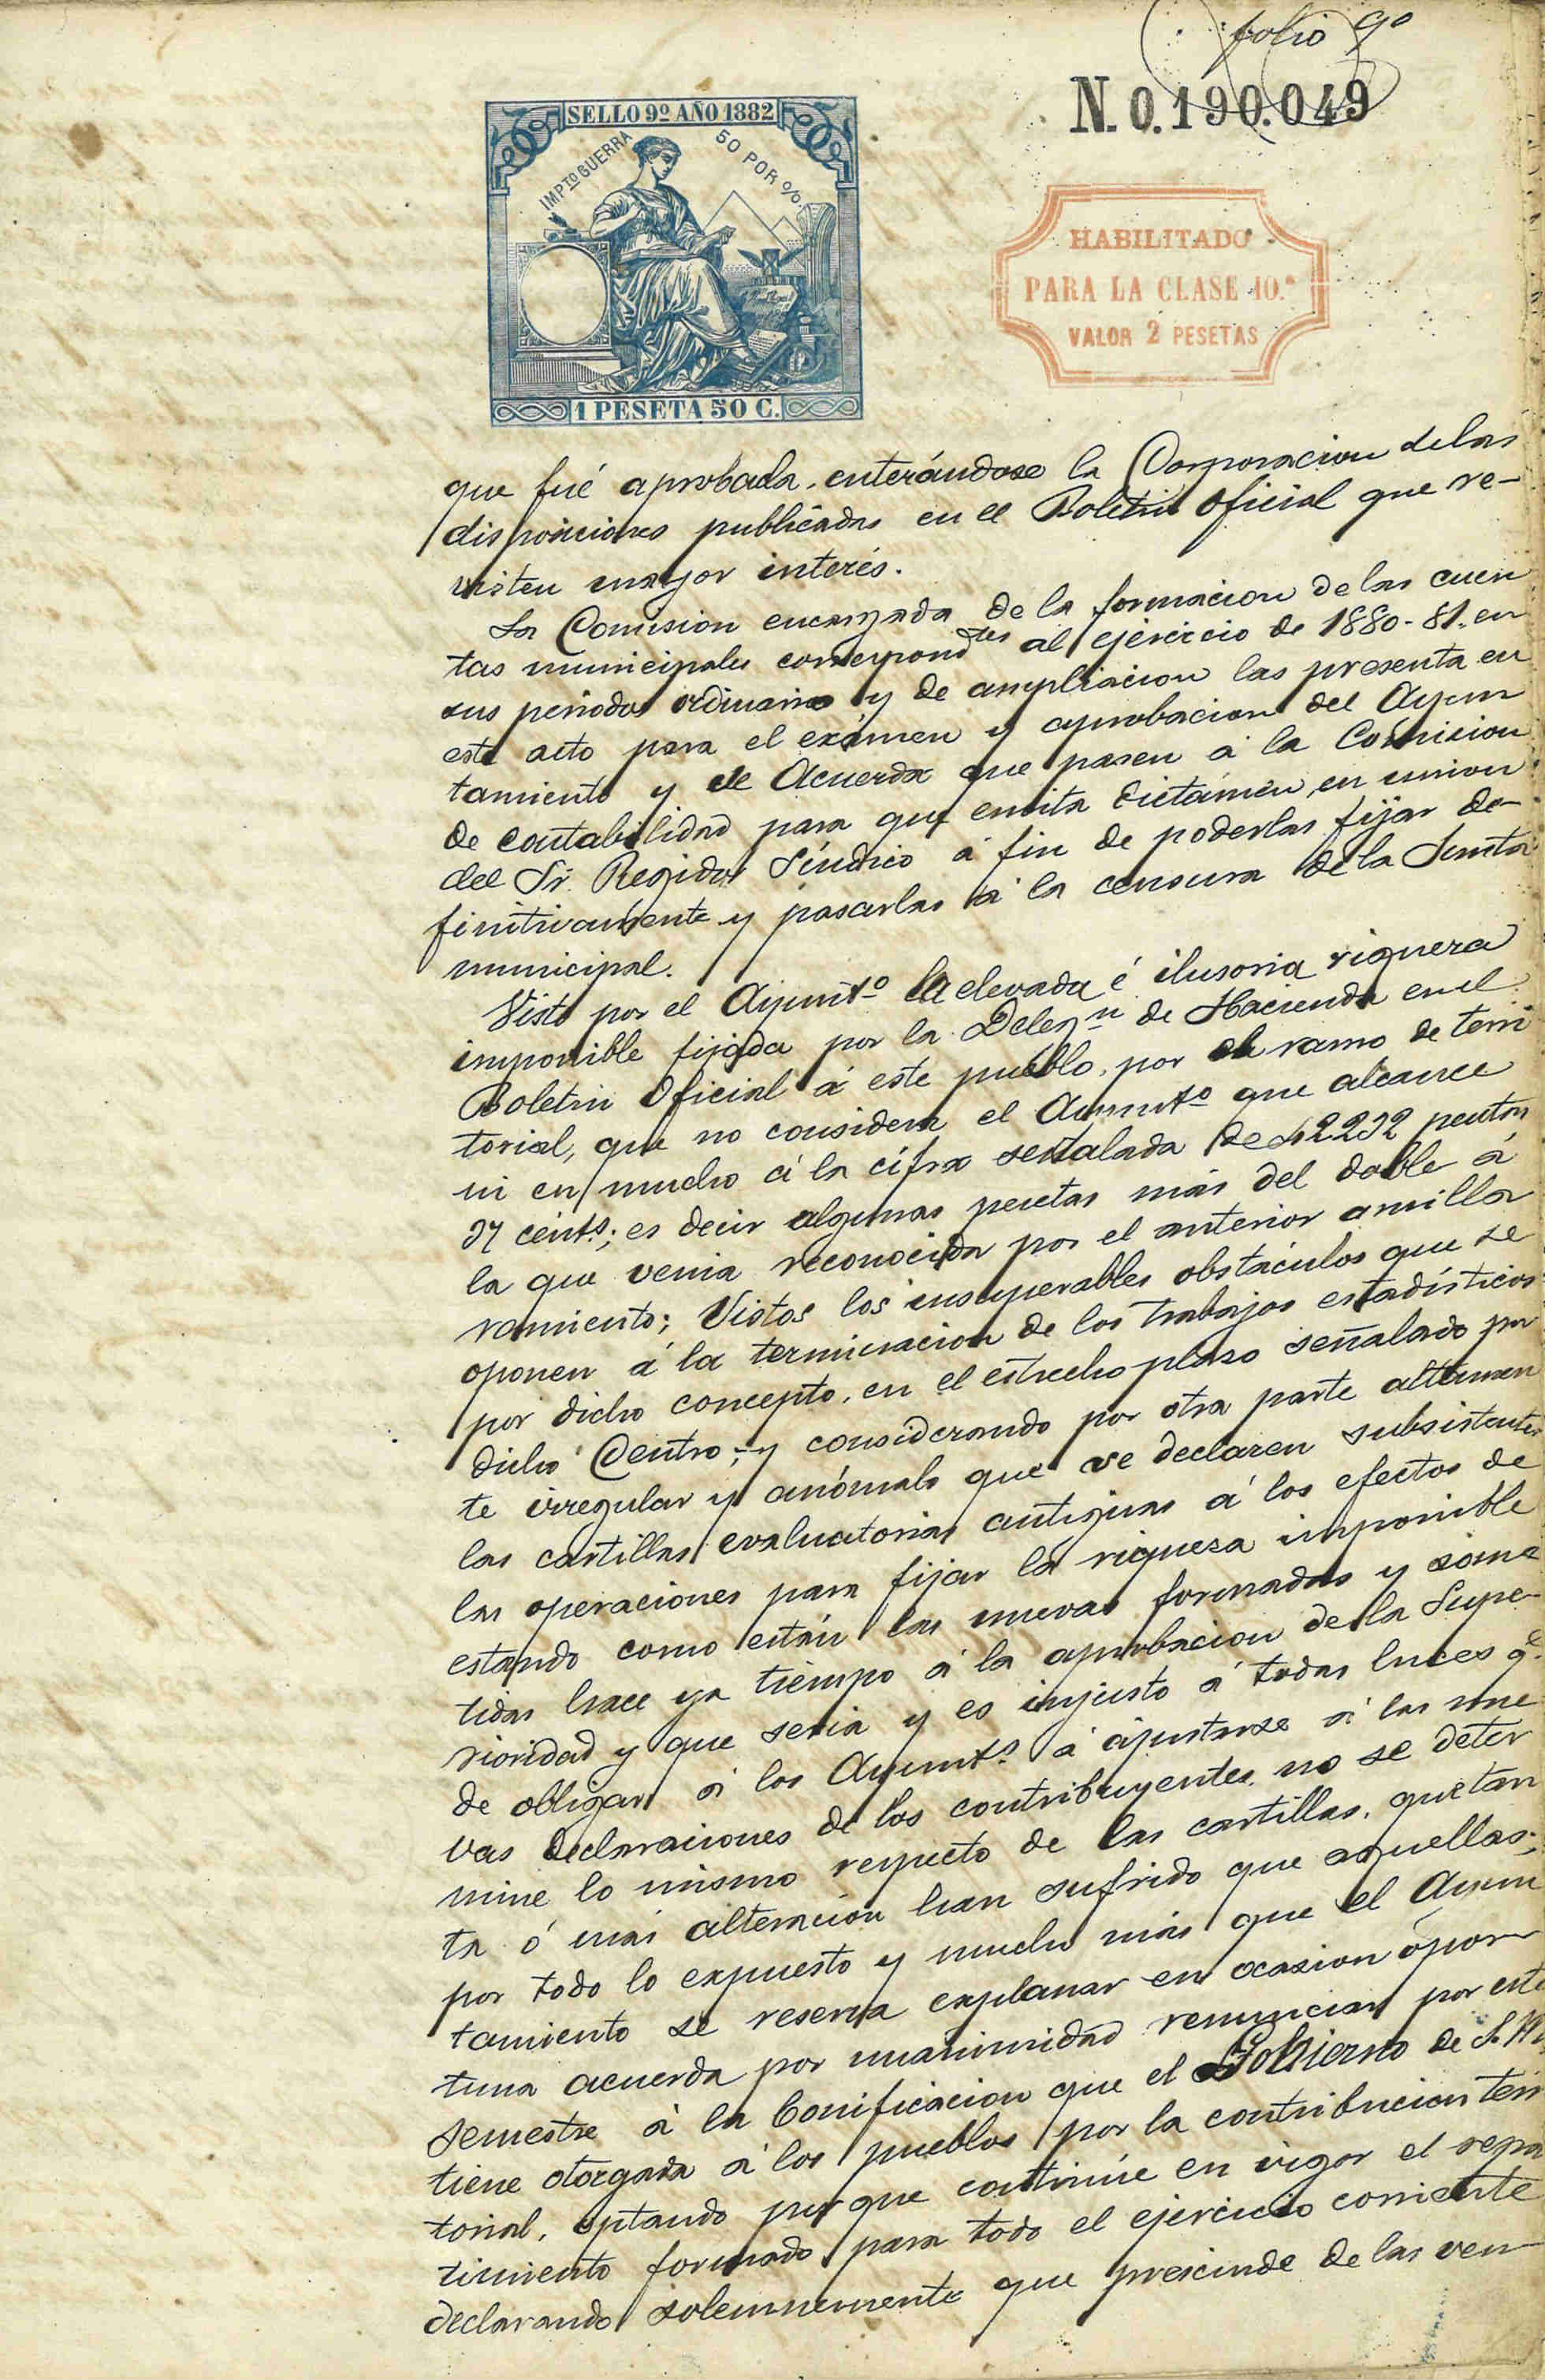 folio 9º
N. 0.190.049
SELLO 9º AÑO 1882
IMPTO GUERRA 50 POR %
1 PESETA 50 C.
HABILITADO
PARA LA CLASE 10.ª
VALOR 2 PESETAS
que fué aprobada, enterándose la Corporacion delas
disposiciones publicadas en el Boletin Oficial que re-
visten mayor interés.
La Comision encargada de la formacion de las cuen
tas municipales correspondtes al ejercicio de 1880-81. en
sus periodos ordinario y de ampliacion las presenta en
este acto para el exámen y aprobacion del Ayun
tamiento y se Acuerda que pasen á la Comision
de contabilidad para que emita dictámen, en union
del Sr. Regidor Síndico á fin de poderlas fijar de-
finitivamente y pasarlas á la censura de la Junta
municipal.
Visto por el Ayuntº la elevada é ilusoria riqueza
imponible fijada por la Delegn de Hacienda en el
Boletin Oficial á este pueblo, por el ramo de terri
torial, que no considera el Ayuntº que alcance
ni en mucho á la cifra señalada de 42232 pesetas
37 cénts; es decir algunas pesetas más del doble á
la que venia reconocida por el anterior amilla
ramiento; Vistos los insuperables obstáculos que se
oponen á la terminacion de los trabajos estadísticos
por dicho concepto, en el estrecho plazo señalado por
dicho Centro; y considerando por otra parte altamen
te irregular y anómalo que se declaren subsistentes
las cartillas evaluatorias antiguas á los efectos de
las operaciones para fijar la riqueza imponible
estando como están las nuevas formadas y some
tidas hace ya tiempo á la aprobacion de la Supe-
rioridad y que seria y es injusto á todas luces qe
de obligar á los Ayunts. á ajustarse á las nue
vas declaraciones de los contribuyentes, no se deter
mine lo mismo respecto de las cartillas, que tan
ta ó más alteracion han sufrido que aquellas;
por todo lo expuesto y mucho más que el Ayun
tamiento se reserva explanar en ocasion opor
tuna acuerda por unanimidad renunciar por este
semestre á la bonificacion que el Gobierno de S. M.
tiene otorgada á los pueblos por la contribucion terri
torial, optando porque continúe en vigor el repar
timiento formado para todo el ejercicio corriente
declarando solemnemente que prescinde de las ven